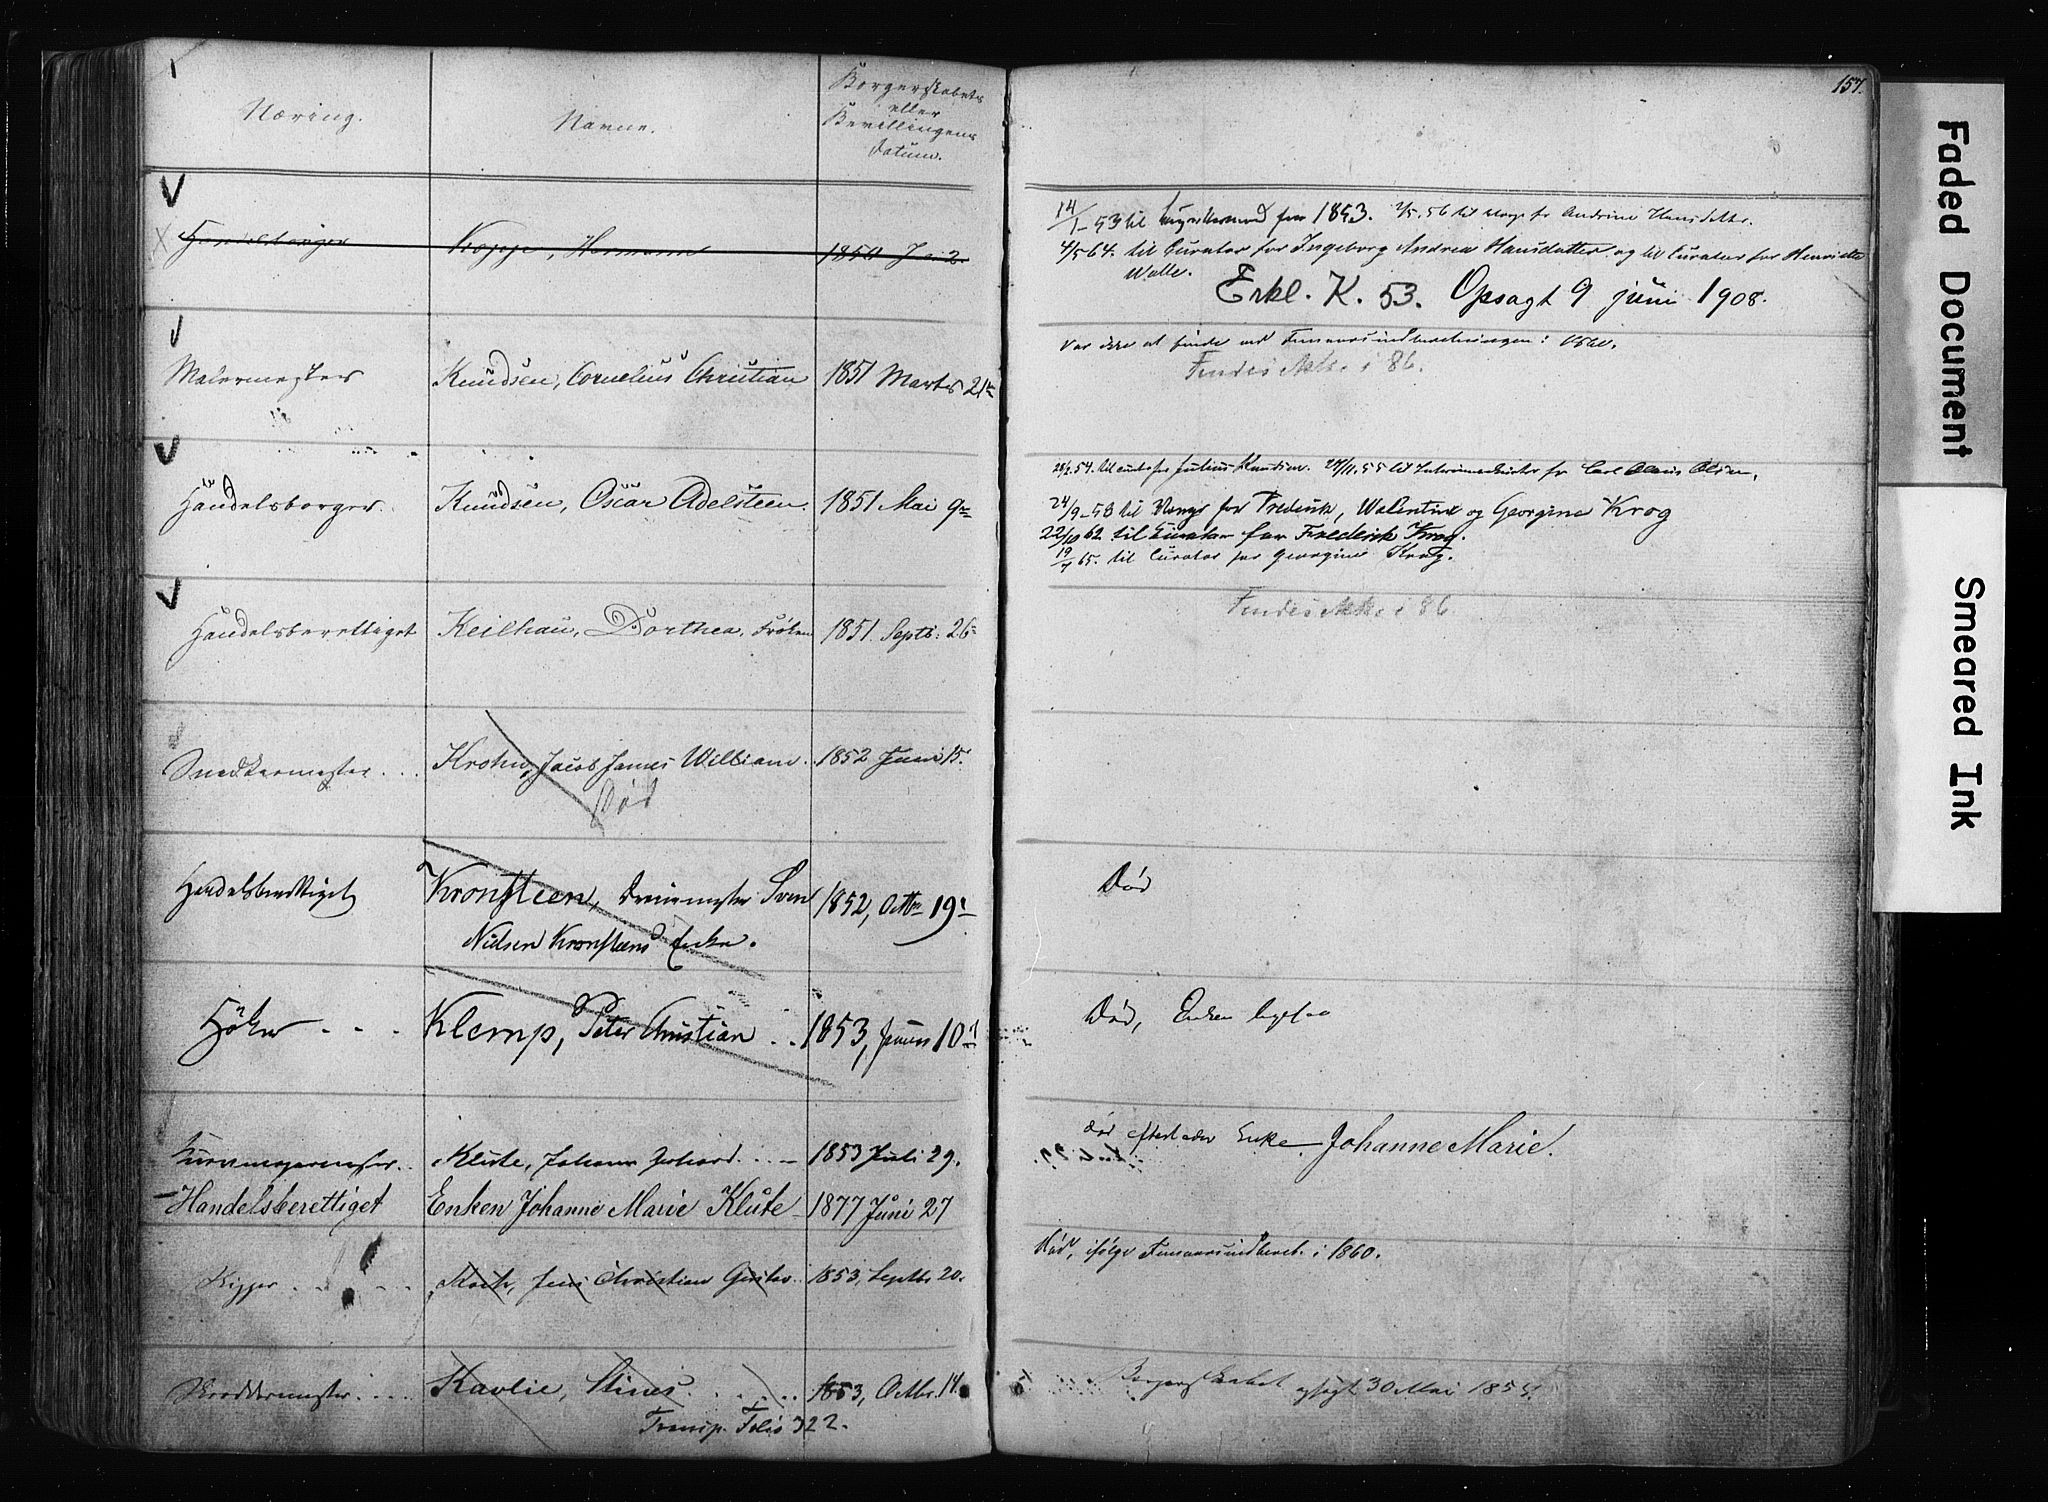 Næring.
Navne.
Borgerskabets
eller
Bevillingens
Datum.
157.
Handelsborger
Koppe, Hermann
1850 Juni 2.
14/1-53 til for 1853. 2/5.56 til Andrine Hansdatter.
4/5 64. til Curator for Ingeborg Andrea Hansdatter og til Curator for Henriette
Walle.
Erkl. K. 53. Opsagt 9 juni 1908.
Malermester
Knudsen, Cornelius Christian
1851 Marts 21de
var ikke at finde ved Femaarsindberetningen i 1860.
Findes ikke i 86.
Handelsborger.
Knudsen, Oscar Adelsteen.
1851 Mai 9de
28/2.54. til for Julius Knudsen. 27/11.55 til for Carl Olaus Olsen.
24/9-58 til Værge for Frederik, Walentine og Georgine Krog
22/10 62 til Curator for Frederik Krog.
19/7 65. til Curator for Georgine Krog.
Handelsberettiget
Keilhau, Dorthea, Frøken
1851. Septb. 26
Findes ikke i 86.
Snedkermester
Krohn, Jacob James William.
1852 Juni 15.
Død
Handelsberettiget
Kronsteen, Sven
1852, Octbr 19.
Nielsen Kronsteens Enke.
Død
Höker
Klemp, Peter Christian
1853, Januar 10
Død, Enken ligesaa
Kurvmagermester
Klute, Johann Gerhard
1853 Juli 29.
Død efterlader Enke Johanne Marie.
Handelsberettiget
Enken Johanne Marie Klute
1877 Juni 27
Rigger
Mork, Jens Christian Gustav
1853, Septbr 20.
Død, ifølge Femaarsindberet. i 1860.
Skræddermester
Kavlie, Stines
1853, Octbr. 14.
Borgerskabet opsagt 30 Mai 1855.
Transp. Folio 322.
Faded Document
Smeared Ink